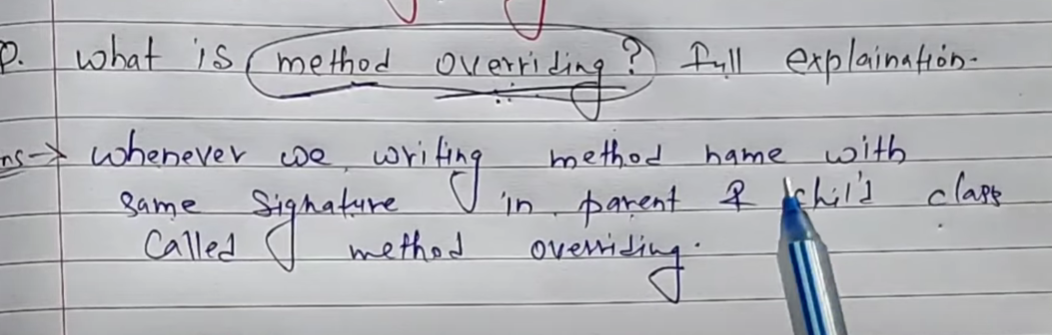 P. what is method overriding? full explaination.
ns→ whenever we writing method name with
same signature in parent & chil'd class
called method overriding.